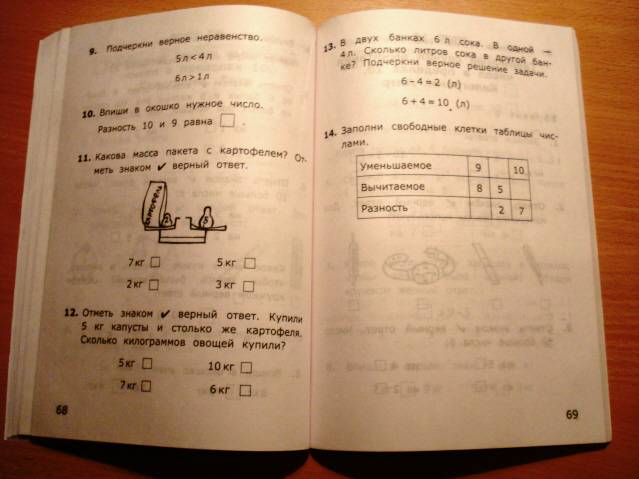 9. Подчеркни верное неравенство.
5 л < 4 л
6 л > 1 л
10. Впиши в окошко нужное число.
Разность 10 и 9 равна □ .
11. Какова масса пакета с картофелем? От-
меть знаком ✔ верный ответ.
КАРТОФЕЛЬ
7 кг □ 5 кг □
2 кг □ 3 кг □
12. Отметь знаком ✔ верный ответ. Купили
5 кг капусты и столько же картофеля.
Сколько килограммов овощей купили?
5 кг □ 10 кг □
7 кг □ 6 кг □
68
13. В двух банках 6 л сока. В одной —
4 л. Сколько литров сока в другой бан-
ке? Подчеркни верное решение задачи.
6 – 4 = 2 (л)
6 + 4 = 10 (л)
14. Заполни свободные клетки таблицы чис-
лами.
Уменьшаемое 9 10
Вычитаемое 8 5
Разность 2 7
69